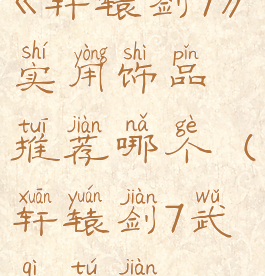 《轩辕剑7》
shí yòng shì pǐn
实用饰品
tuī jiàn nǎ gè
推荐哪个（
xuān yuán jiàn wǔ
轩辕剑7武
qì tú jiàn